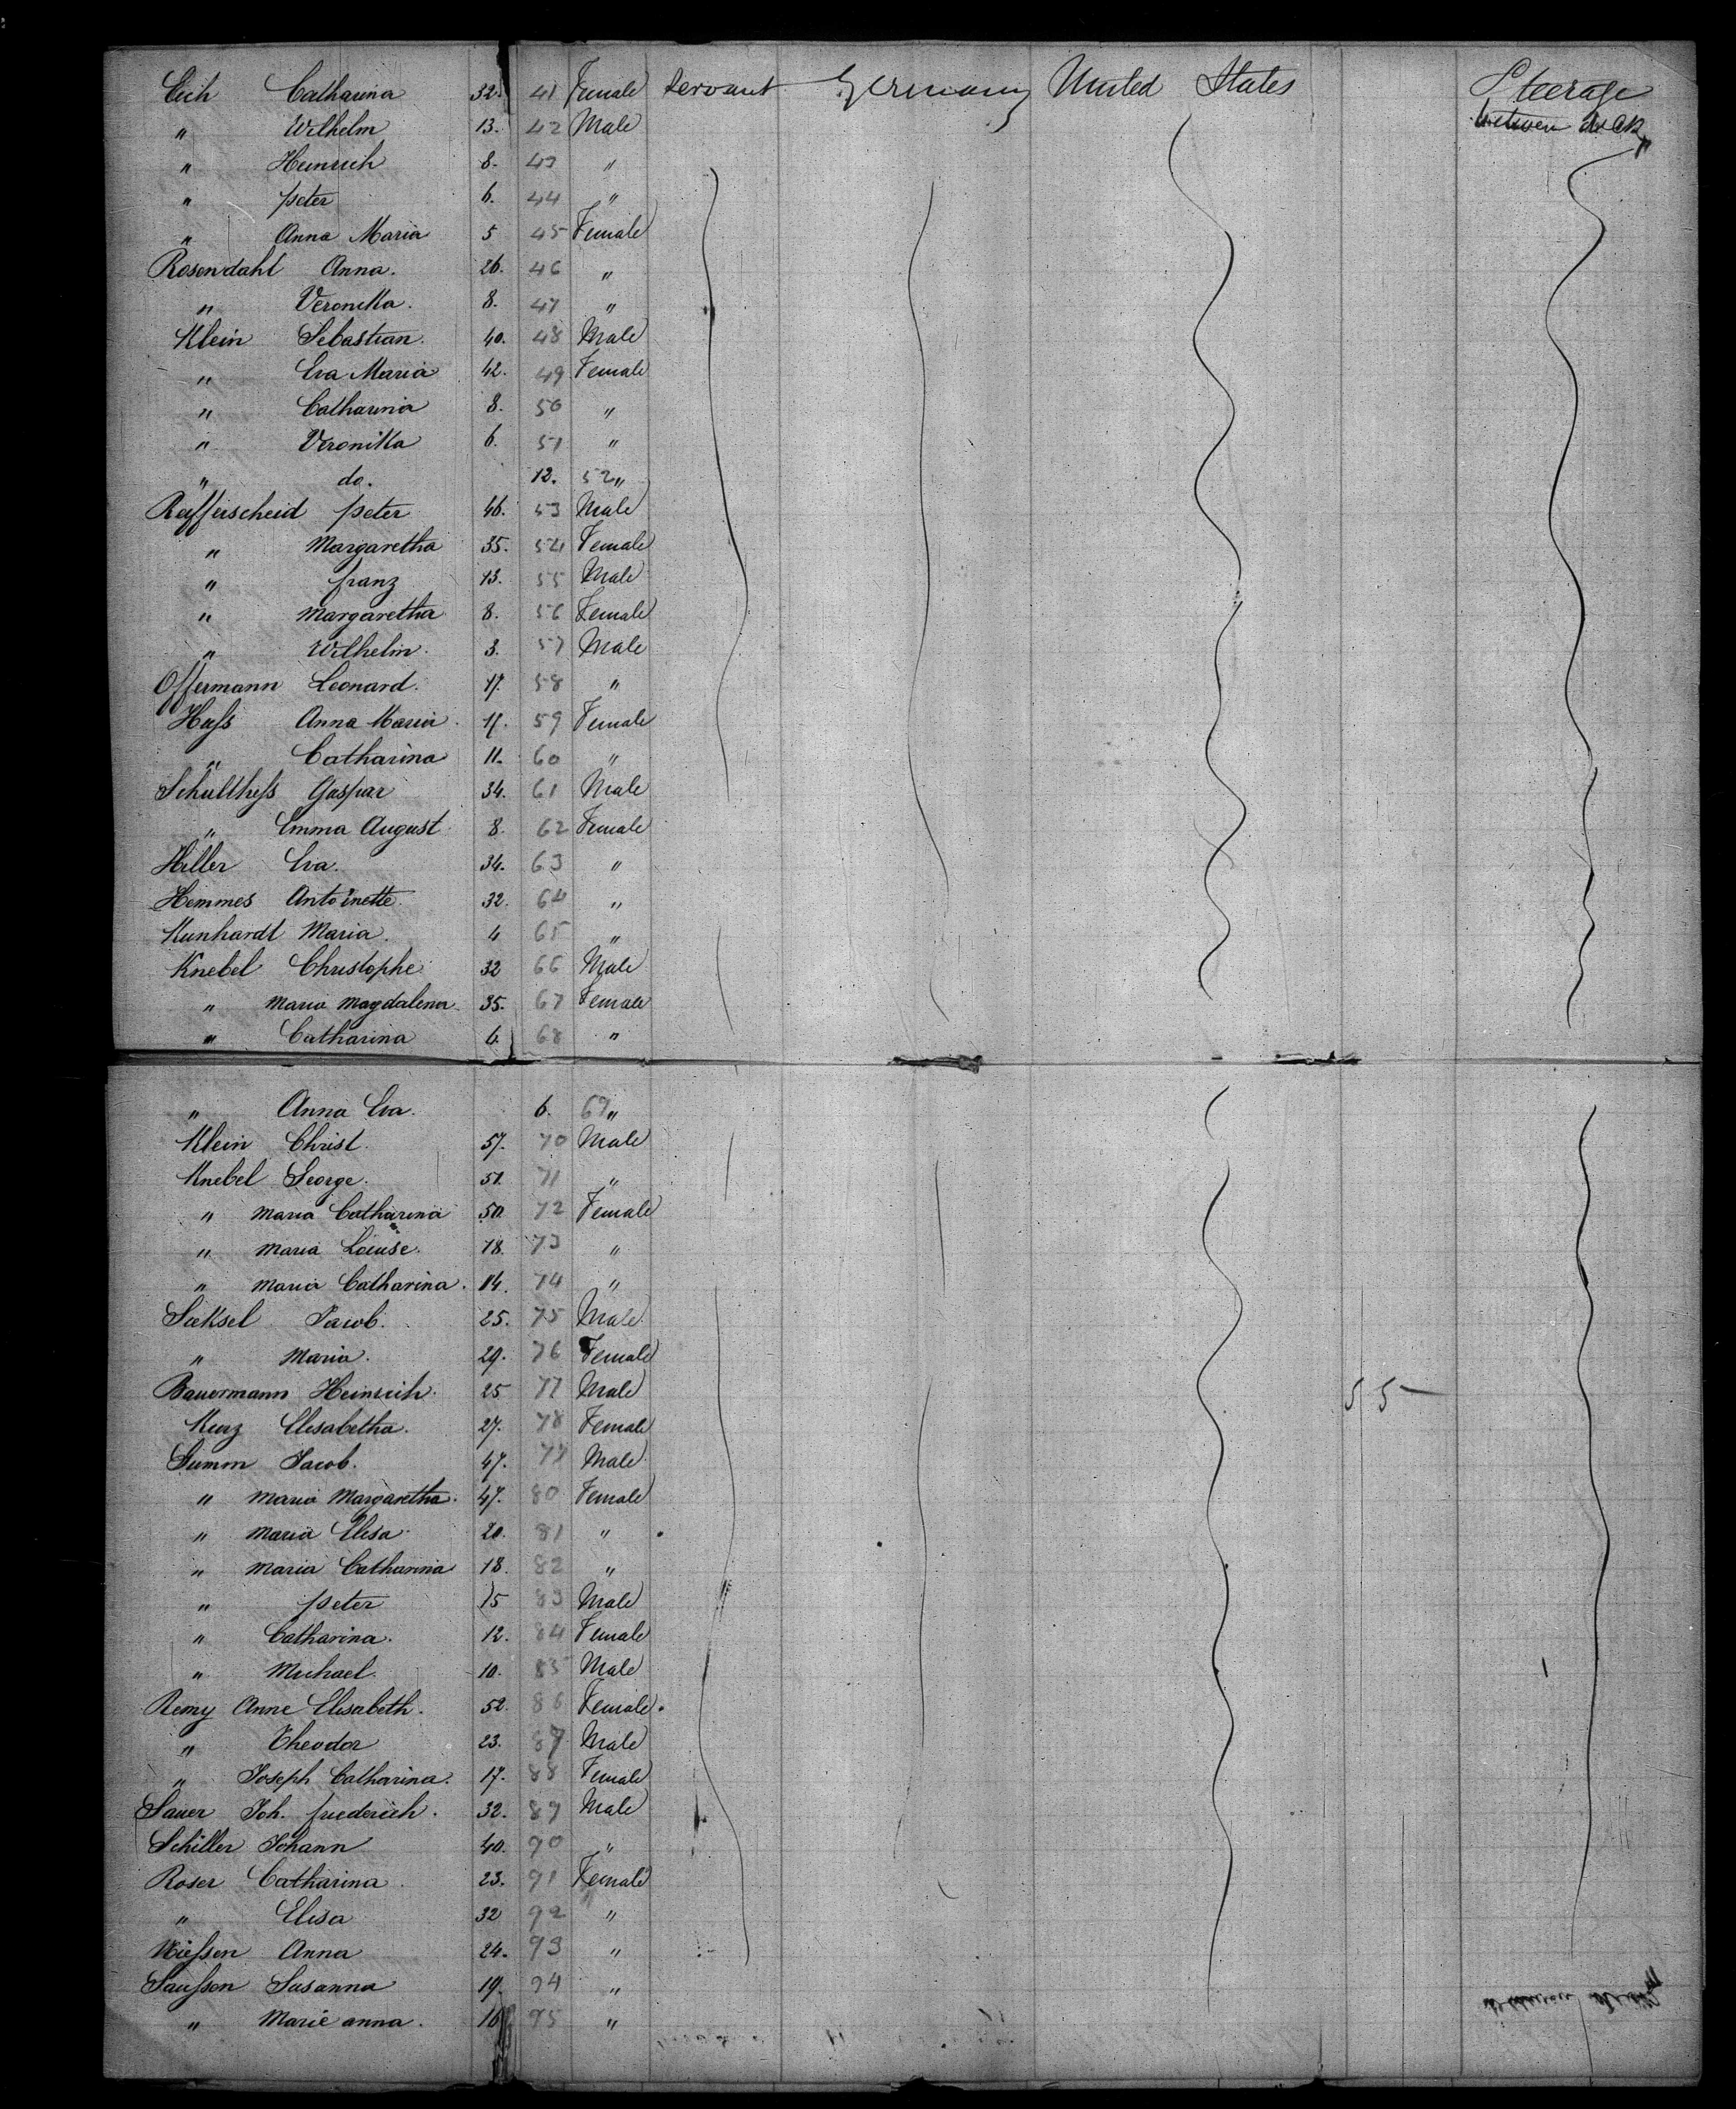 Eich Catharina 32. 41 Female Servant Germany United States Steerage
" Wilhelm 13. 42 Male between deck
" Heinrich 8. 43 "
" peter 6. 44 "
" Anna Maria 5 45 Female
Rosendahl Anna. 26. 46 "
" Veronika. 8. 47 "
Klein Sebastian. 40. 48 Male
" Eva Maria 42. 49 Female
" Catharina 8. 50 "
" Veronika 6. 51 "
" do. 12. 52 "
Reifferscheid peter 46. 53 Male
" Margaretha 35. 54 Female
" franz 13. 55 Male
" Margaretha 8. 56 Female
" Wilhelm. 3. 57 Male
Offermann Leonard. 17. 58 "
Haſs Anna Maria. 17. 59 Female
" Catharina 11. 60 "
Schultheſs Gaspar 34. 61 Male
" Emma August. 8. 62 Female
Hiller Eva. 34. 63 "
Hemmes Antoinette. 32. 64 "
Kunhardt Maria. 4 65 "
Knebel Christophe 32 66 Male
" Maria Magdalena. 35. 67 Female
" Catharina 4. 68 "
" Anna Eva. 6. 69 "
Klein Christ. 57. 70 Male
Knebel George. 51. 71 "
" Maria Catharina 50. 72 Female
" Maria Louise. 18. 73 "
" Maria Catharina. 14. 74 "
Jacob. 25. 75 Male
" Maria. 29. 76 Female
Bauermann Heinrich. 25 77 Male 55-
Kurz Elisabetha. 27. 78 Female
Summ Jacob. 47. 79 Male
" Maria Margaretha. 47. 80 Female
" Maria Elisa 20. 81 "
" Maria Catharina 18. 82 "
" peter 15 83 Male
" Catharina. 12. 84 Female
" Michael. 10. 85 Male
Remy Anne Elisabeth. 52. 86 Female
" Theodor 23. 87 Male
" Joseph Catharina. 17. 88 Female
Sauer Joh. friederich. 32. 89 Male
Schiller Johann 40. 90 "
Roser Catharina. 23. 91 Female
" Elisa 32 92 "
Nieſsen Anna 24. 93 "
Susanna 19. 94 "
" Marie anna. 16 95 "